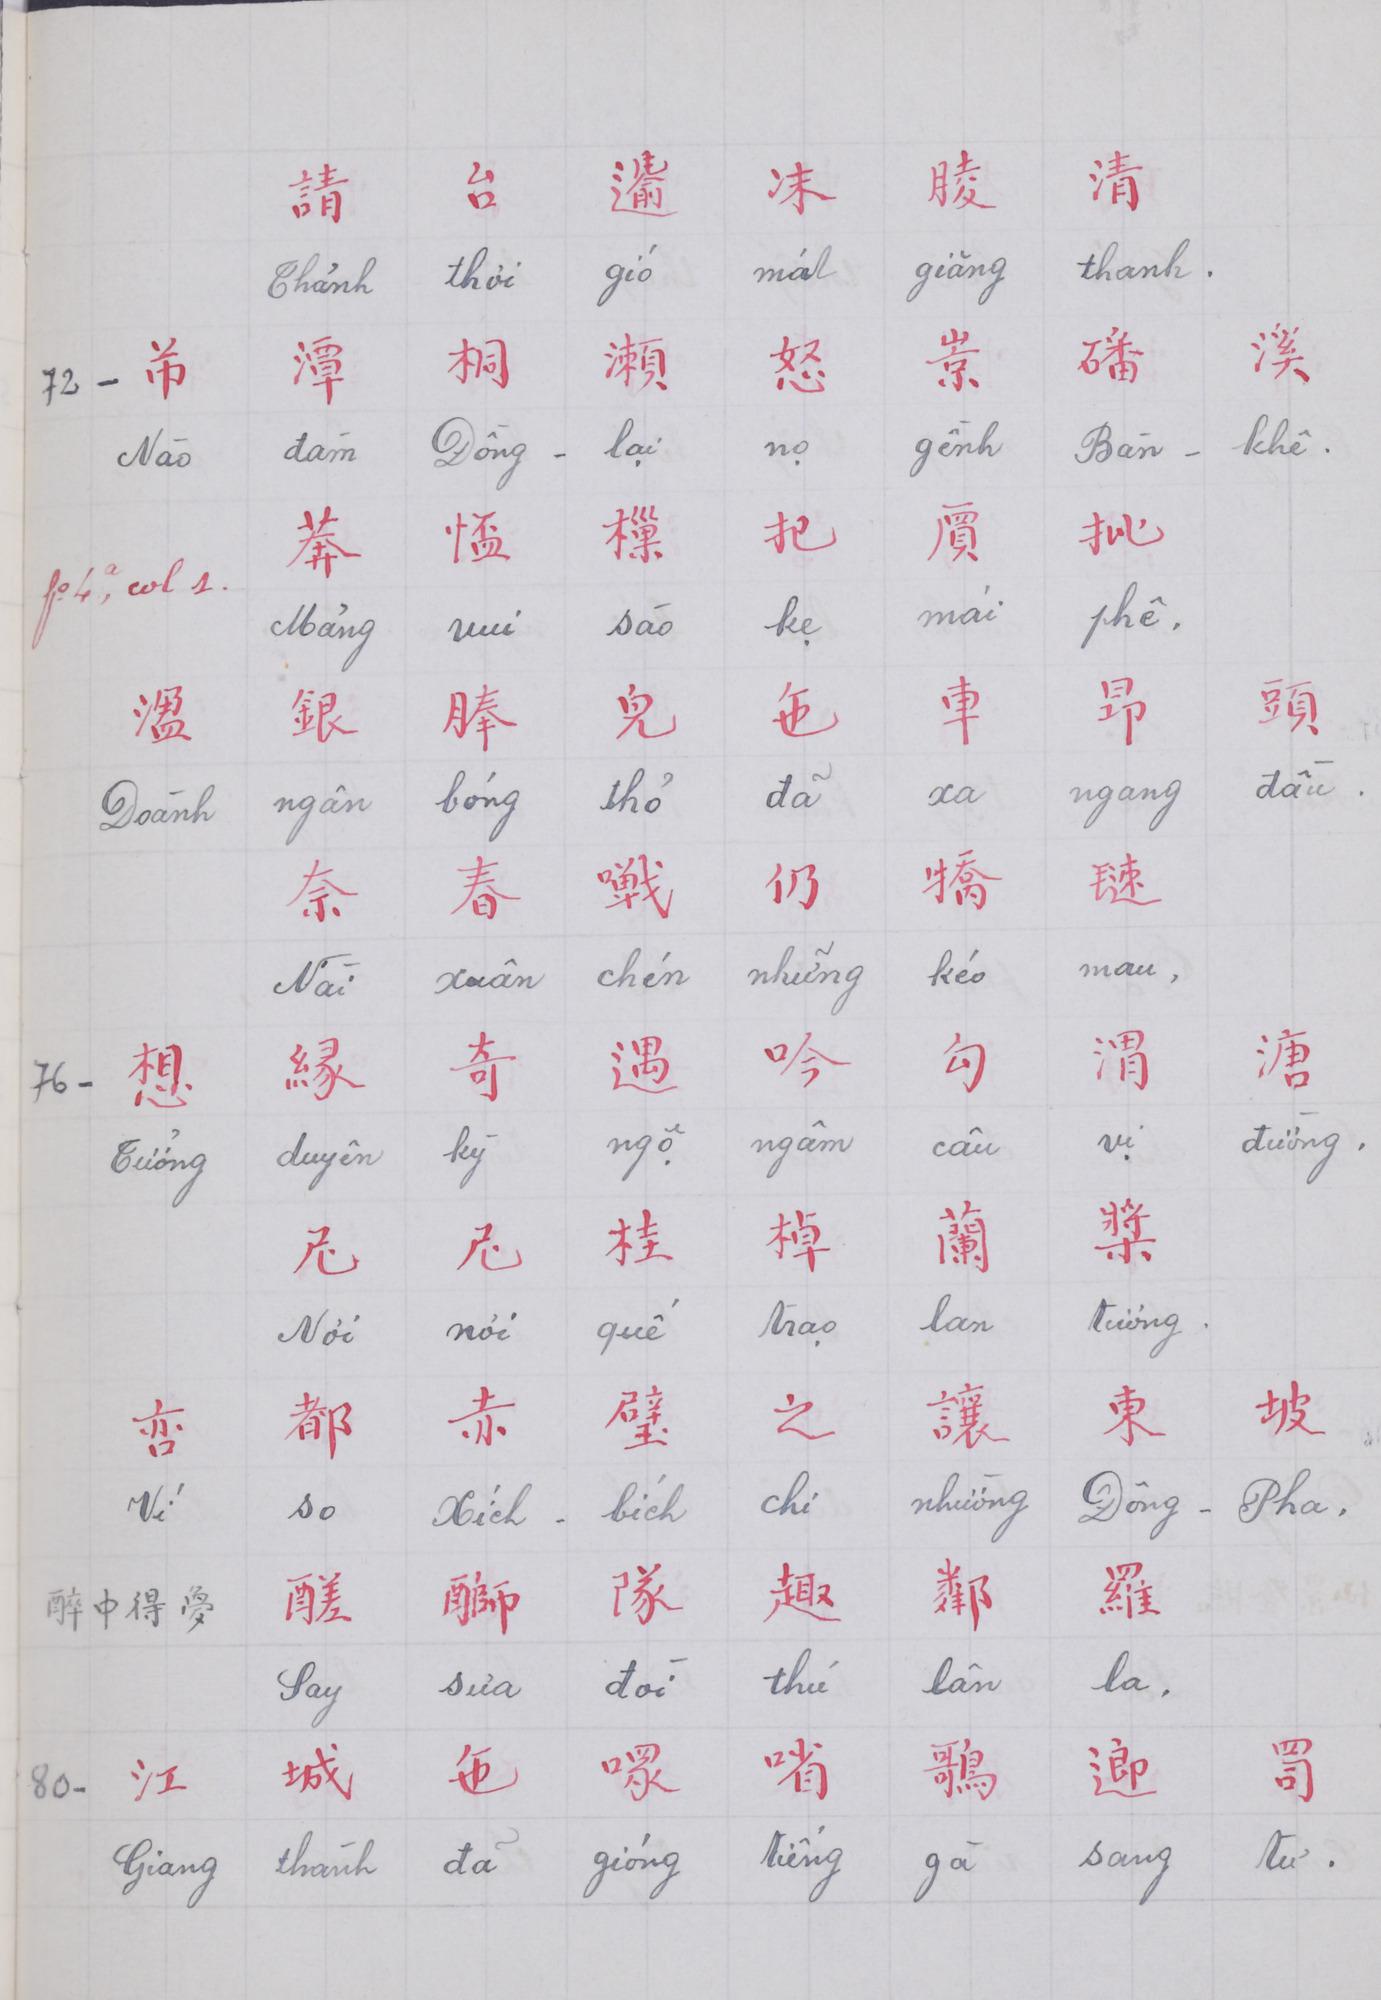 請 台 𬲇 沬 𦝄 清
Thảnh thơi gió mát giăng thanh.
72 - 芇 潭 桐 瀬 怒 岽 磻 溪
Nào đầm Đồng - lại nọ gềnh Bàn - khê.
莾 㥺 樔 把 㕓 批
fo 4a, col 1.
Mảng vui sào kẹ mái phê,
溋 銀 䏾 兒 㐌 車 昂 頭
Doành ngân bóng thỏ đã xa ngang đầu.
奈 春 𡃹 仍 𤛇 𨖧
Nài xuân chén những kéo mau,
76 - 想 緣 奇 遇 吟 勾 渭 溏
Tưởng duyên kỳ ngộ ngâm câu vị đường.
尼 尼 桂 棹 蘭 槳
Nơi nơi quế trạo lan tương.
都 赤 壁 之 讓 東 坡
Ví so Xích - bích chi nhường Đông - Pha,
醉中得愛 醝 隊 趣 鄰 羅
Say sưa đòi thú lân la,
80 - 江 城 㐌 㗂 𪃴 𨖅 罰
Giang thành đã gióng tiếng gà sang tư.